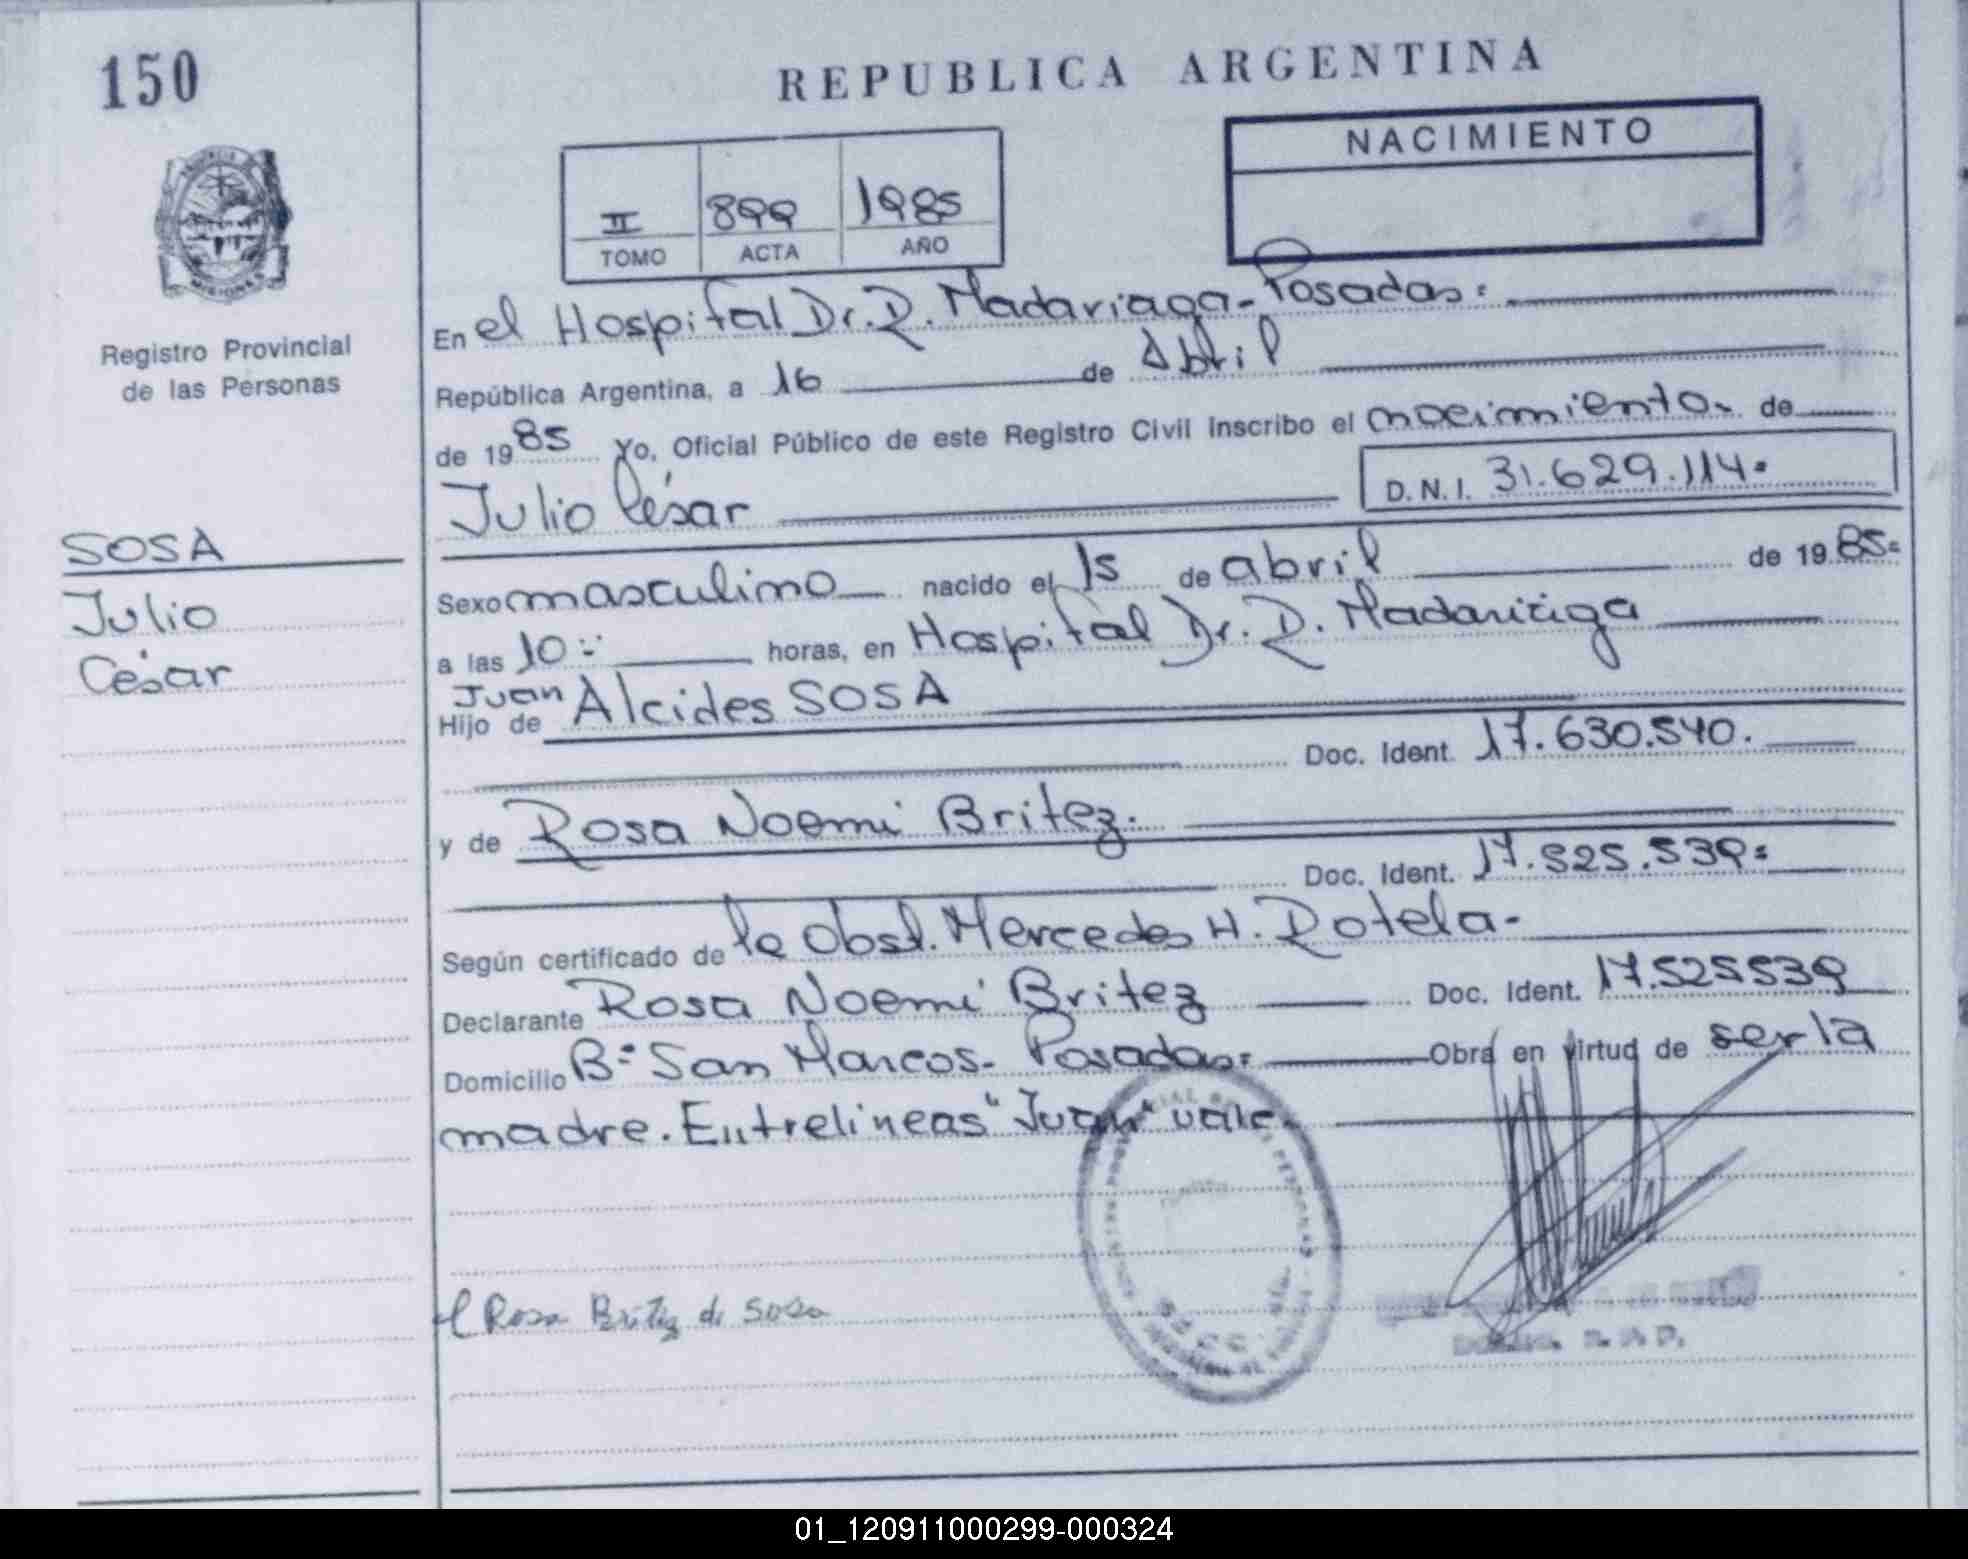 150
REPUBLICA ARGENTINA
NACIMIENTO
II 899 1985
TOMO ACTA AÑO
Registro Provincial
de las Personas
En el Hospital Dr. R. Madariaga - Posadas =
República Argentina, a 16 de Abril
de 1985 Yo, Oficial Público de este Registro Civil inscribo el nacimiento de
Julio César D.N.I. 31.629.114.
SOSA
Julio
César
Sexo masculino nacido el 15 de abril de 1985=
a las 10 horas, en Hospital Dr. R. Madariaga
Juan
Hijo de Alcides SOSA
Doc. Ident. 17.630.540.
y de Rosa Noemi Britez.
Doc. Ident. 17.525.539=
Según certificado de la Obst. Mercedes H. Rotela-
Declarante Rosa Noemi Britez Doc. Ident. 17.525539
Domicilio B= San Marcos- Posadas= Obra en virtud de ser la
madre. Entrelineas "Juan" vale.
Rosa Britez de Sosa
01_120911000299-000324